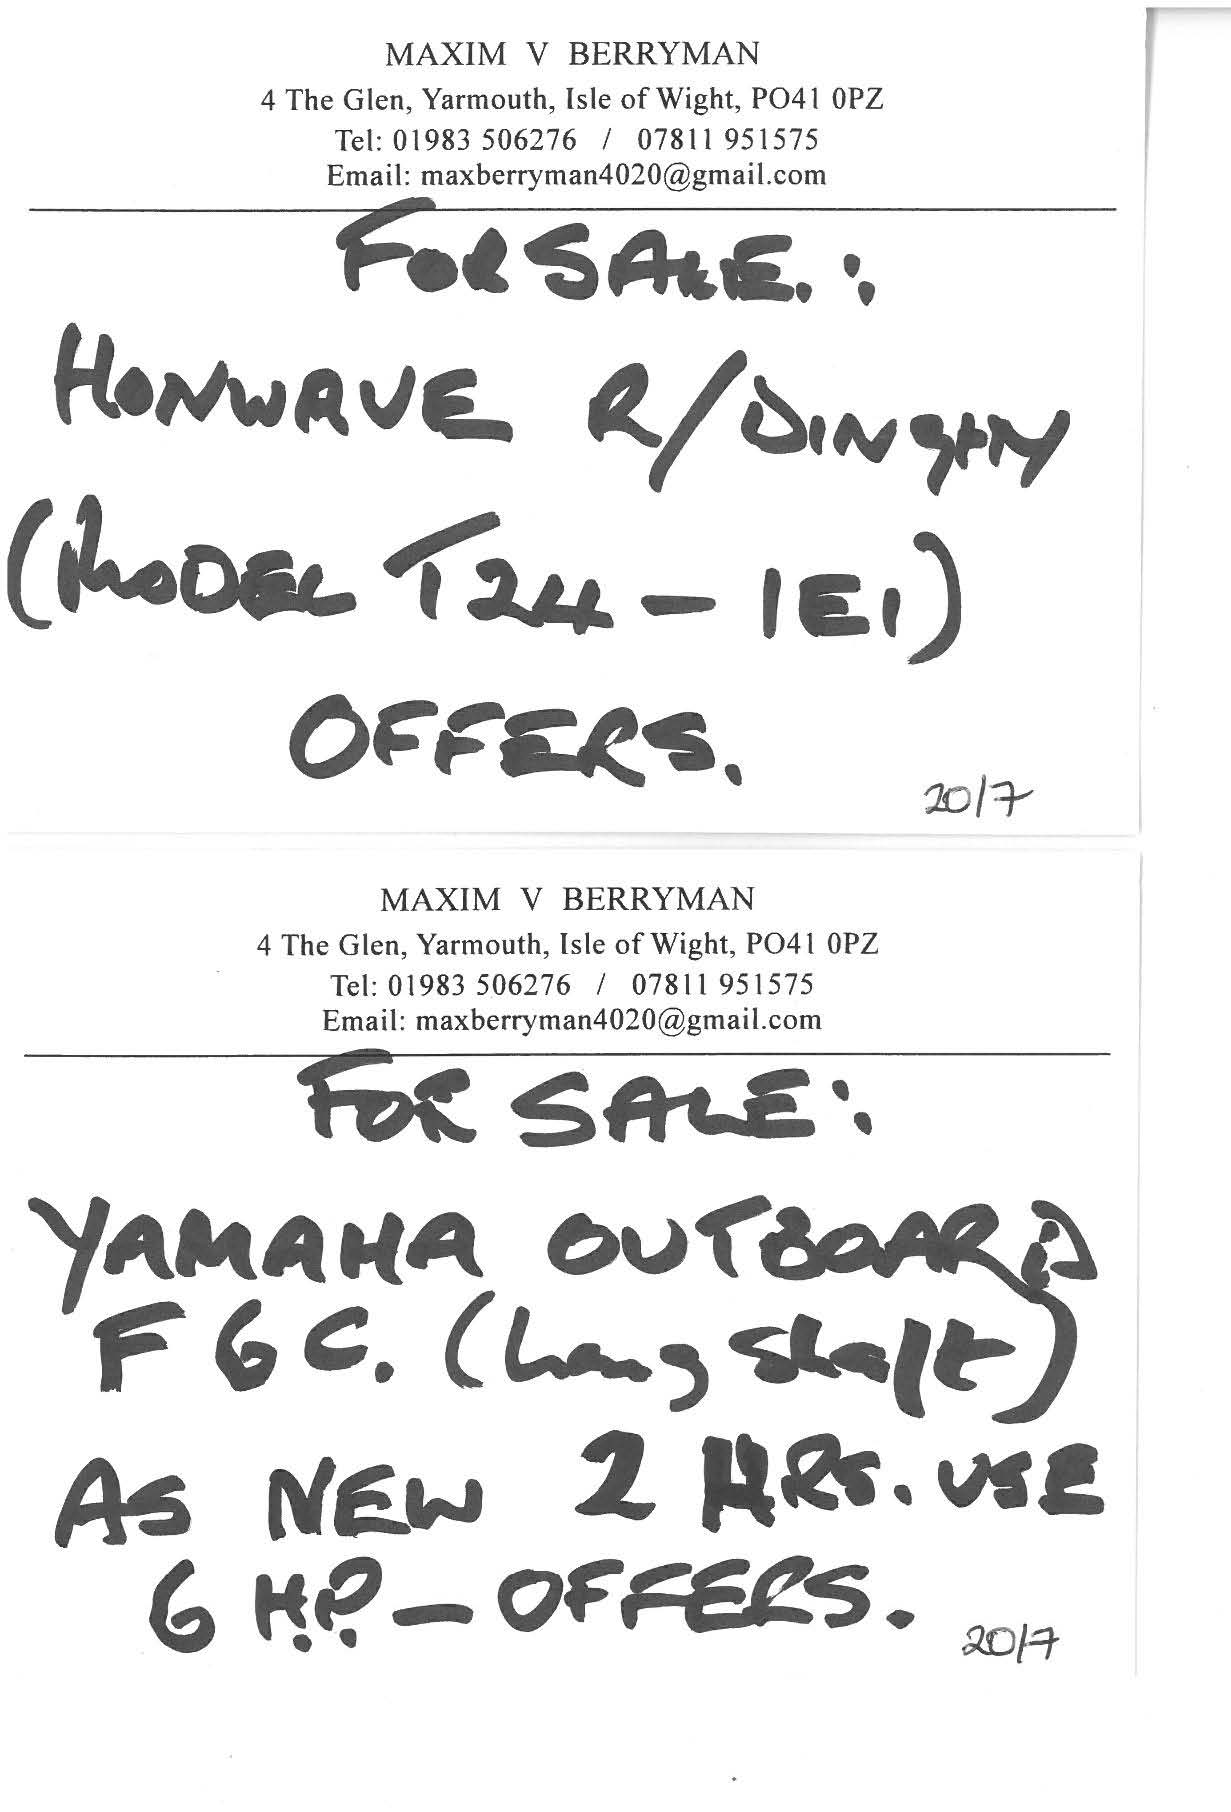 MAXIM V BERRYMAN
4 The Glen, Yarmouth, Isle of Wight, PO41 0PZ
Tel: 01983 506276 / 07811 951575
Email: maxberryman4020@gmail.com
FOR SALE.:
HONWAVE R/DINGHY
(MODEL T24 - IE1)
OFFERS.
20/7
MAXIM V BERRYMAN
4 The Glen, Yarmouth, Isle of Wight, PO41 0PZ
Tel: 01983 506276 / 07811 951575
Email: maxberryman4020@gmail.com
FOR SALE:
YAMAHA OUTBOARD
F6C. (Long shaft)
AS NEW 2 HRS. USE
6 H.P. - OFFERS.
20/7